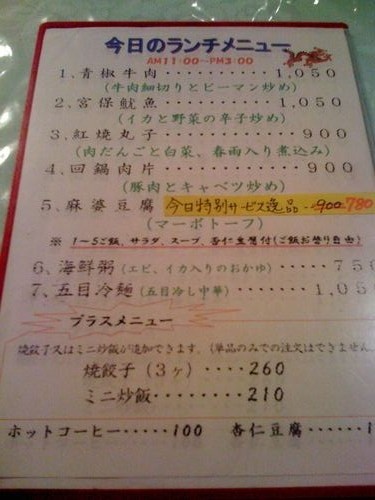 今日のランチメニュー
AM11:00~PM3:00
1、青椒牛肉・・・・・・・・・・・1,050
(牛肉細切りとピーマン炒め)
2、宮保魷魚・・・・・・・・・・・1,050
(イカと野菜の辛子炒め)
3、紅焼丸子・・・・・・・・・・・900
(肉だんごと白菜、春雨入り煮込み)
4、回鍋肉片・・・・・・・・・・・900
(豚肉とキャベツ炒め)
5、麻婆豆腐 今日特別サービス逸品・・900 780
(マーボトーフ)
※ 1~5ご飯、サラダ、スープ、杏仁豆腐付(ご飯お替り自由)
6、海鮮粥(エビ、イカ入りのおかゆ)・・・・・75
7、五目冷麺(五目冷し中華)・・・・・・・1,05
プラスメニュー
焼餃子又はミニ炒飯が追加できます。(単品のみでの注文はできません
焼餃子(3ヶ)・・・・260
ミニ炒飯・・・・・・・・210
ホットコーヒー・・・・・100 杏仁豆腐・・・・・・1